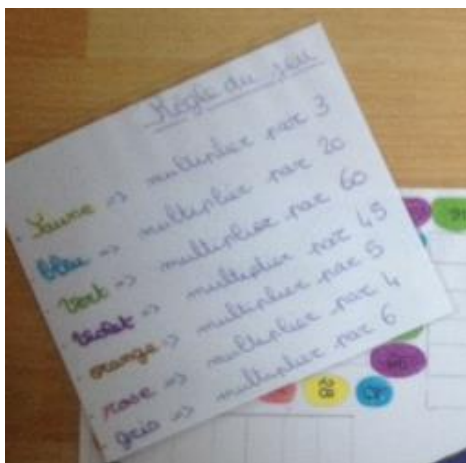 Règle du jeu
Jaune => multiplier par 3
bleu => multiplier par 20
Vert => multiplier par 60
Violet => multiplier par 45
orange => multiplier par 5
rose => multiplier par 4
gris => multiplier par 6
28